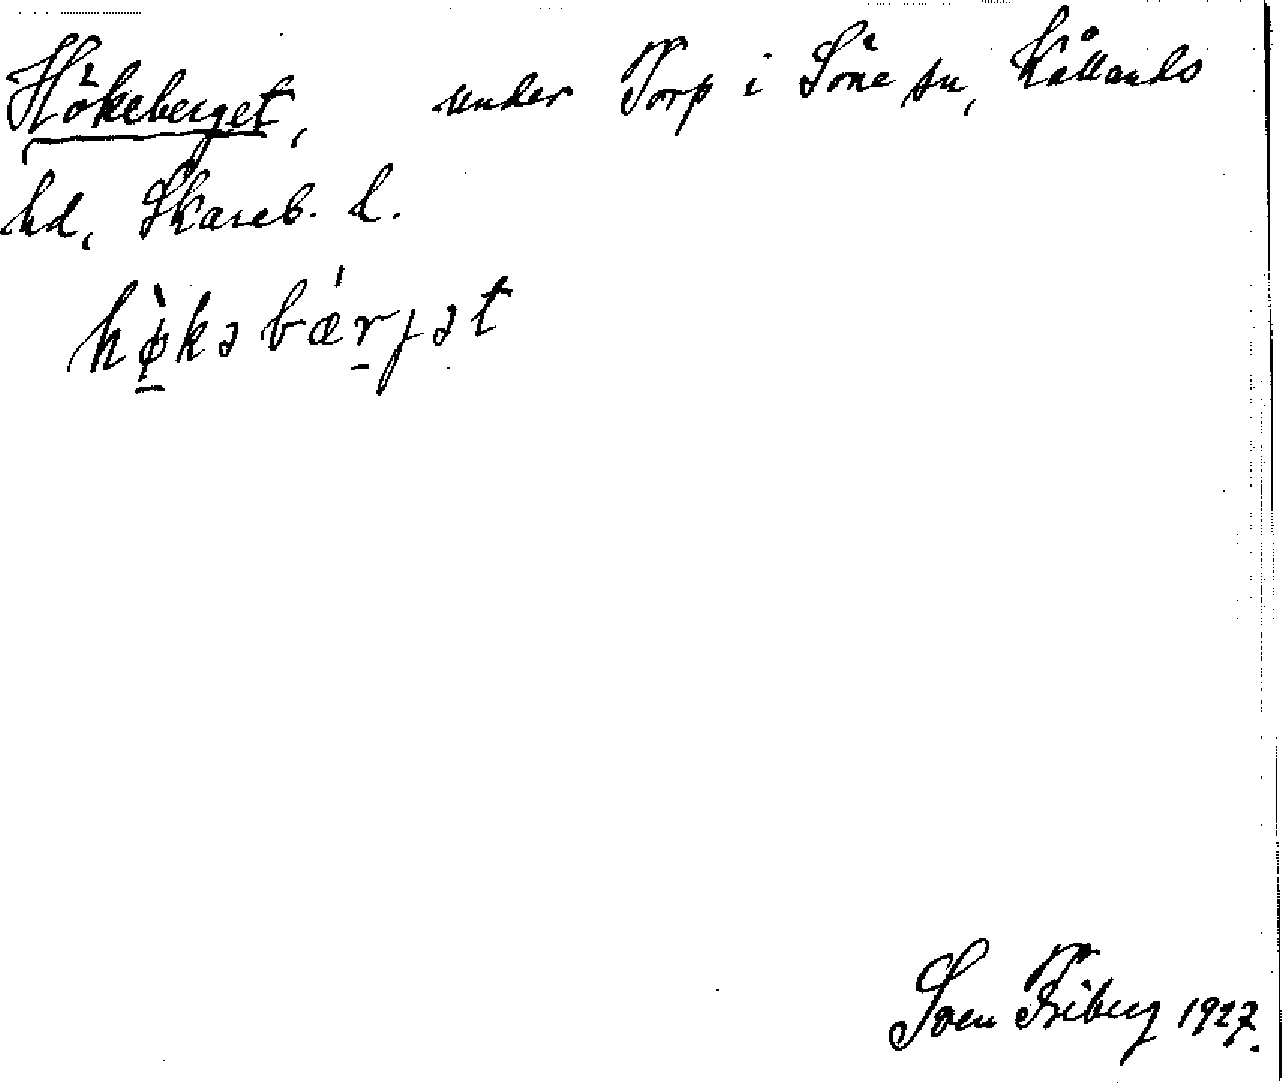 Hökeberget, under Torp i Söne sn, Kållands
hd, Skarab. l.
hø̀kəbǽrjət
Sven Friberg 1927.